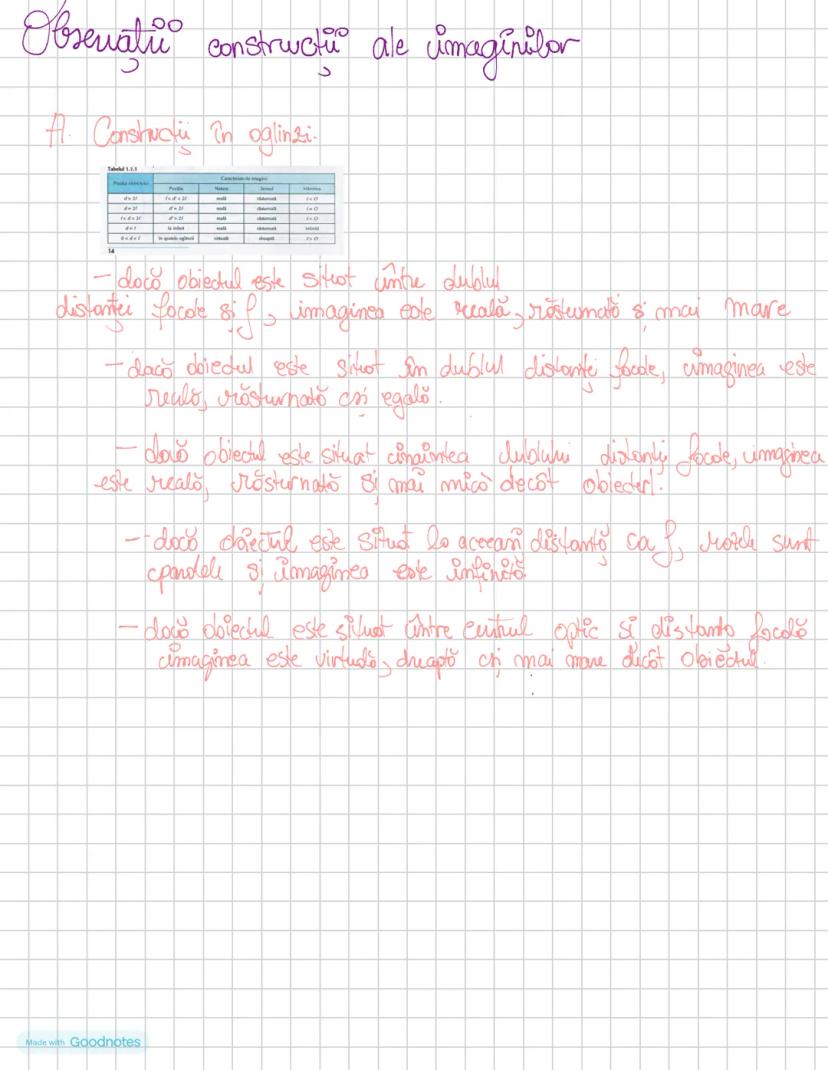 Observații construcții ale imaginilor
A. Construcții în oglinzi.
Tabelul 1.1.1
Poziția obiectului
Caracteristicile imaginii
Poziția Natura Sensul Mărimea
d > 2f f < d' < 2f reală răsturnată I < O
d = 2f d' = 2f reală răsturnată I = O
f < d < 2f d' > 2f reală răsturnată
d = f la infinit reală răsturnată infinită
0 < d < f în spatele oglinzii virtuală dreaptă I > O
14
- dacă obiectul este situat între dublul
distanței focale și f, imaginea este reală, răsturnată și mai mare
- dacă obiectul este situat în dublul distanței focale, imaginea este
reală, răsturnată și egală.
- dacă obiectul este situat înaintea dublului distanței focale, imaginea
este reală, răsturnată și mai mică decât obiectul.
- dacă obiectul este situat la aceeași distanță ca f, razele sunt
paralele și imaginea este infinită.
- dacă obiectul este situat între centrul optic și distanta focală
imaginea este virtuală, dreaptă și mai mare decât obiectul.
Made with Goodnotes